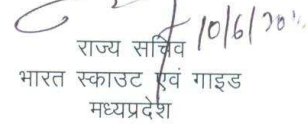 10/6/20
राज्य सचिव
भारत स्काउट एवं गाइड
मध्यप्रदेश